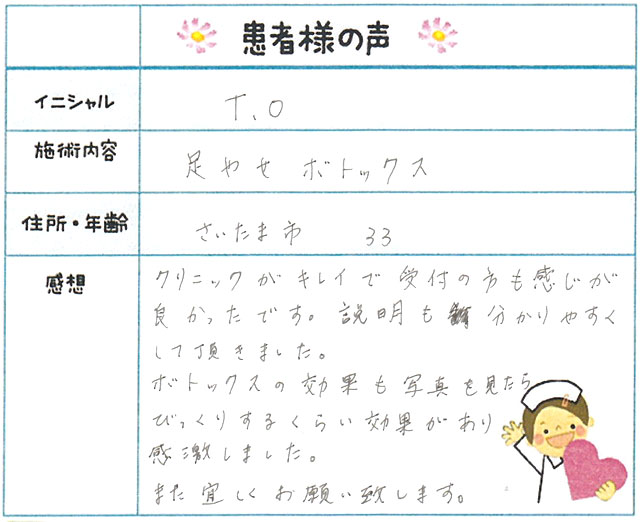 患者様の声
イニシャル T.O
施術内容 足やせ ボトックス
住所・年齢 さいたま市 33
感想
クリニックがキレイで受付の方も感じが
良かったです。説明も分かりやすく
して頂きました。
ボトックスの効果も写真を見たら
びっくりするくらい効果があり
感激しました。
また宜しくお願い致します。